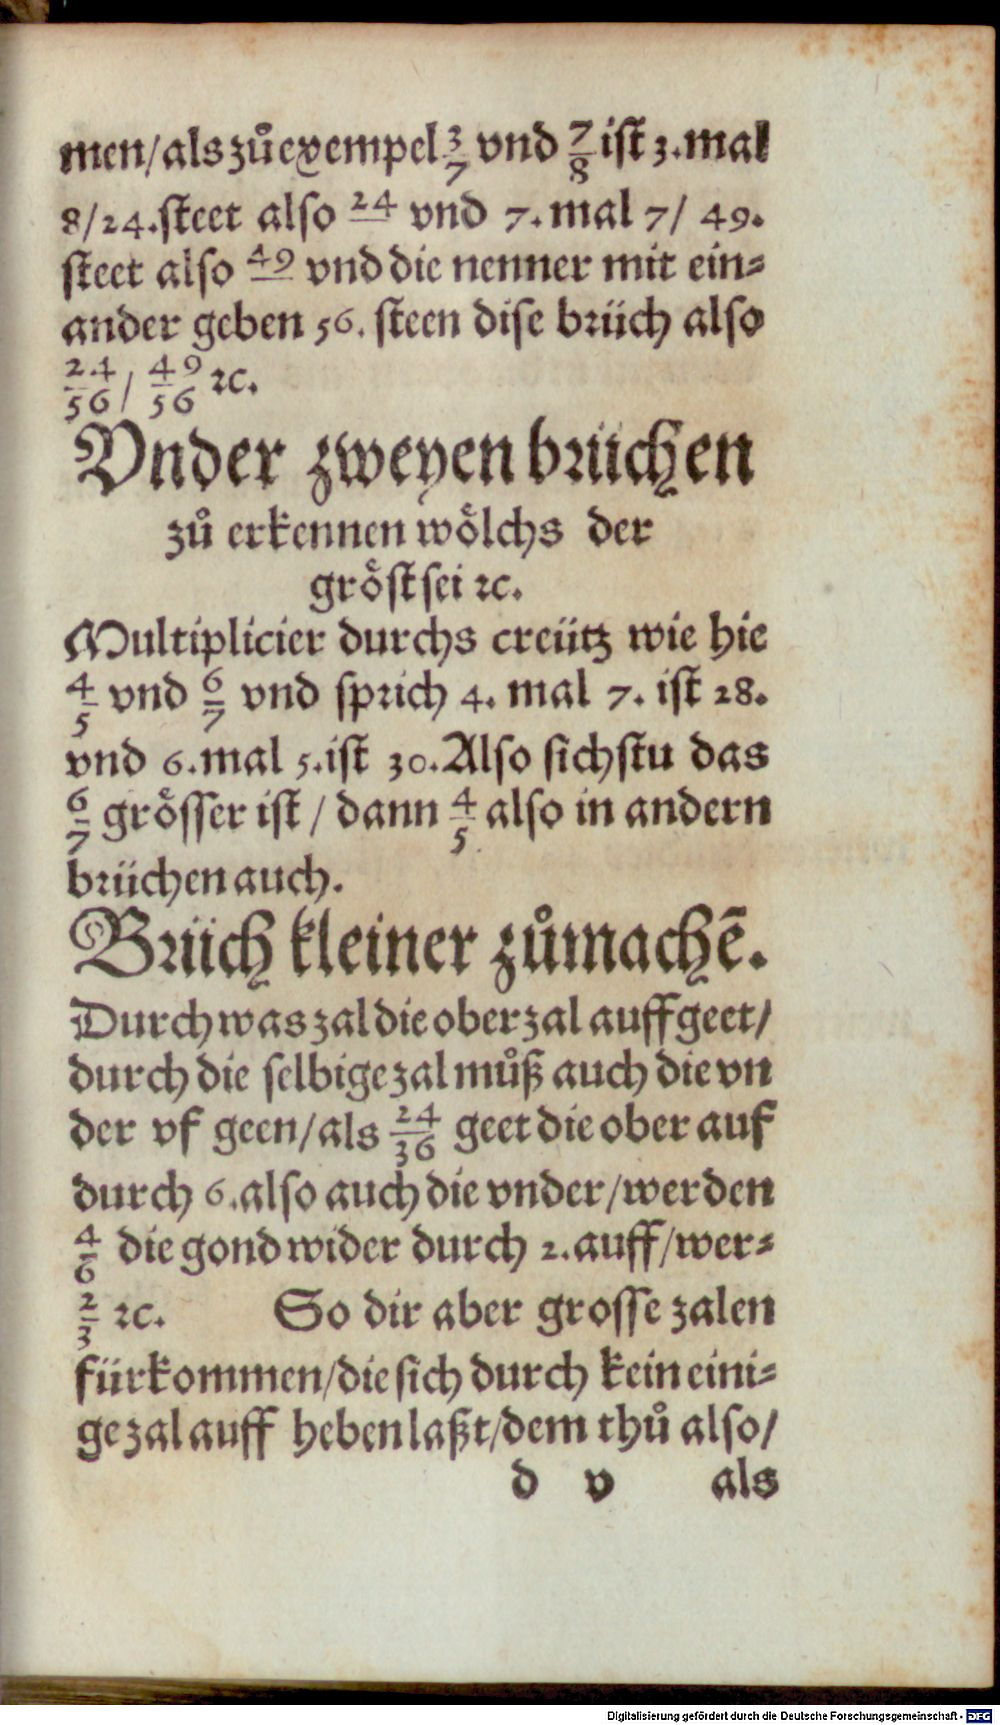 men/als zuͦ exempel 3/7 vnd 7/8 ist 3. mal
8/24. steet also 24 vnd 7. mal 7/ 49.
steet also 49 vnd die nenner mit ein⸗
ander geben 56. steen dise brüch also
24/56 / 49/56 ꝛc.
Vnder zweyen brüchen
zuͦ erkennen woͤlchs der
groͤst sei ꝛc.
Multiplicier durchs creütz wie hie
4/5 vnd 6/7 vnd sprich 4. mal 7. ist 28.
vnd 6. mal 5. ist 30. Also sichstu das
6/7 groͤsser ist / dann 4/5 also in andern
brüchen auch.
Brüch kleiner zuͦmachē.
Durch was zal die ober zal auff geet/
durch die selbige zal muͦß auch die vn
der vf geen/als 24/36 geet die ober auf
durch 6. also auch die vnder/werden
4/6 die gond wider durch 2. auff/wer⸗
2/3 ꝛc. So dir aber grosse zalen
fürkommen/die sich durch kein eini⸗
ge zal auff heben laßt/dem thuͦ also/
d v als
Digitalisierung gefördert durch die Deutsche Forschungsgemeinschaft - DFG